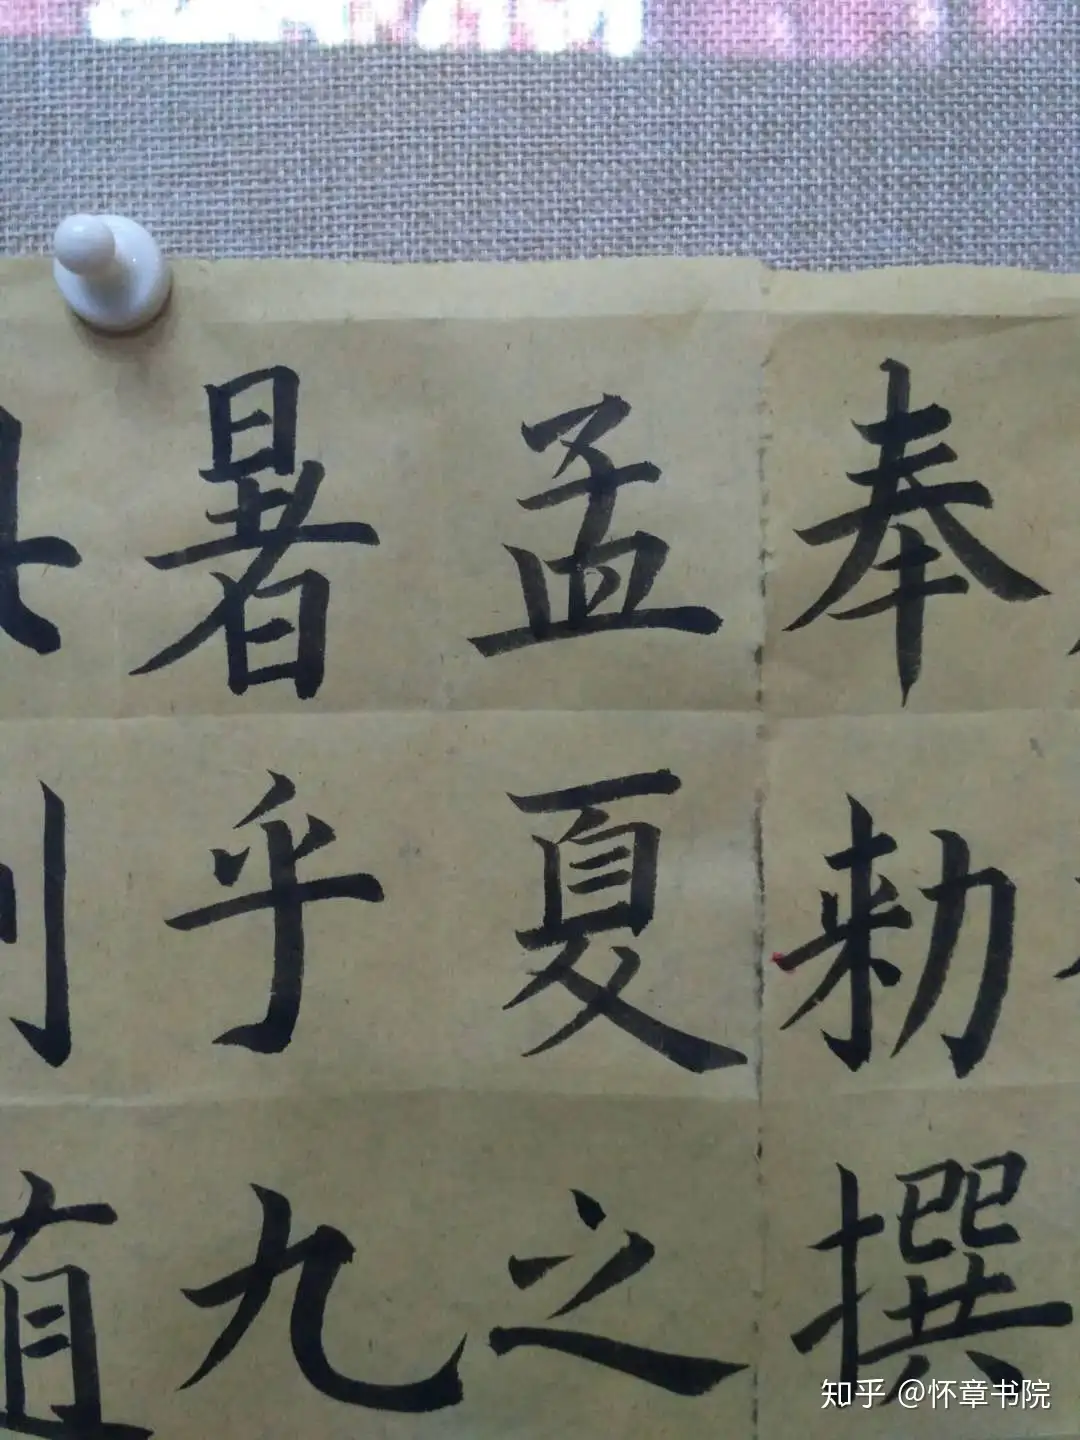 奉勅撰
孟夏之
暑乎九
知乎 @怀章书院